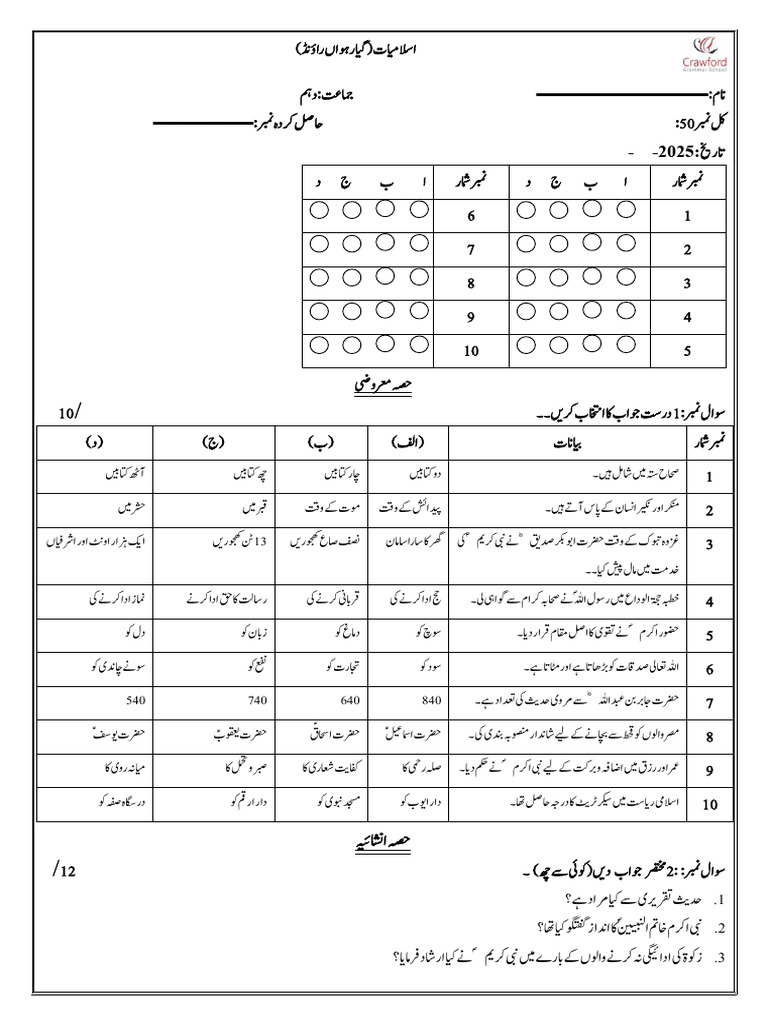 اسلامیات (گیارھواں راؤنڈ)
Crawford
Grammar School
نام: جماعت: دہم
کل نمبر50: حاصل کردہ نمبر:
تاریخ: 2025- -
نمبر شمار ا ب ج د نمبر شمار ا ب ج د
1 6
2 7
3 8
4 9
5 10
حصہ معروضی
سوال نمبر:1 درست جواب کا انتخاب کریں۔۔ /10
نمبر شمار بیانات (الف) (ب) (ج) (د)
1 صحاح ستہ میں شامل ہیں۔ دو کتابیں چار کتابیں چھ کتابیں آٹھ کتابیں
2 منکر اور نکیر انسان کے پاس آتے ہیں۔ پیدائش کے وقت موت کے وقت قبر میں حشر میں
3 غزوہ تبوک کے وقت حضرت ابوبکر صدیق ؓ نے نبی کریم ؐ کی گھر کا سارا سامان نصف صاع کھجوریں 13 ٹن کھجوریں ایک ہزار اونٹ اور اشرفیاں
خدمت میں مال پیش کیا۔۔
4 خطبہ حجۃ الوداع میں رسول اللہؐ نے صحابہ کرام سے گواہی لی۔ حج ادا کرنے کی قربانی کرنے کی رسالت کا حق ادا کرنے نماز ادا کرنے کی
5 حضور اکرم ؐ نے تقویٰ کا اصل مقام قرار دیا۔ سوچ کو دماغ کو زبان کو دل کو
6 اللہ تعالی صدقات کو بڑھاتا ہے اور مٹاتا ہے۔ سود کو تجارت کو نفع کو سونے چاندی کو
7 حضرت جابر بن عبد اللہ ؓ سے مروی حدیث کی تعداد ہے۔ 840 640 740 540
8 مصر والوں کو قحط سے بچانے کے لیے شاندار منصوبہ بندی کی۔ حضرت اسماعیلؑ حضرت اسحاقؑ حضرت یعقوبؑ حضرت یوسفؑ
9 عمر اور رزق میں اضافہ و برکت کے لیے نبی اکرم ؐ نے حکم دیا۔ صلہ رحمی کا کفایت شعاری کا صبر و تحمل کا میانہ روی کا
10 اسلامی ریاست میں سیکرٹریٹ کا درجہ حاصل تھا۔ دار ایوب کو مسجد نبوی کو دار ارقم کو درسگاہ صفہ کو
حصہ انشائیہ
سوال نمبر: :2 مختصر جواب دیں (کوئی سے چھ) ۔ /12
1. حدیث تقریری سے کیا مراد ہے؟
2. نبی اکرم خاتم النبیینؐ کا انداز گفتگو کیا تھا؟
3. زکوۃ کی ادائیگی نہ کرنے والوں کے بارے میں نبی کریم ؐ نے کیا ارشاد فرمایا؟